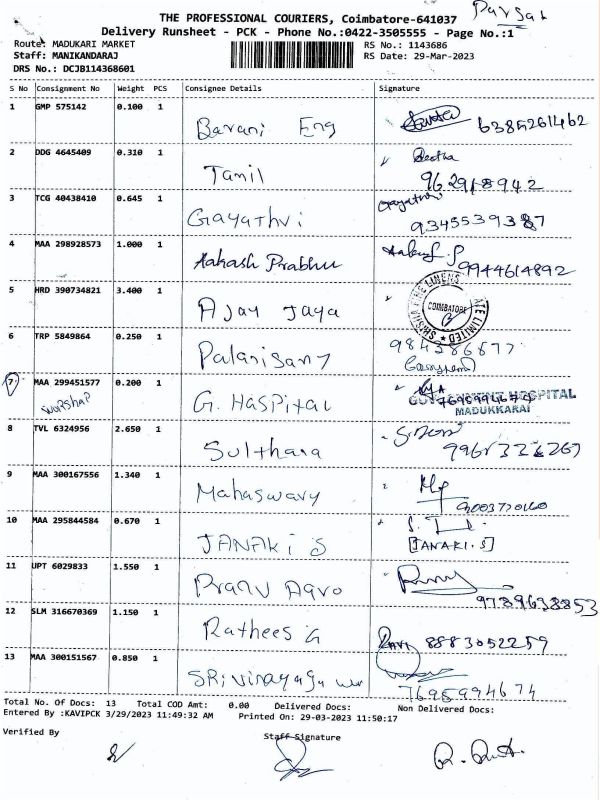 THE PROFESSIONAL COURIERS, Coimbatore-641037
Parsal
Delivery Runsheet - PCK - Phone No.:0422-3505555 - Page No.:1
Route: MADUKARI MARKET
RS No.: 1143686
Staff: MANIKANDARAJ
RS Date: 29-Mar-2023
DRS No.: DCJB114368601
S No Consignment No Weight PCS Consignee Details Signature
1 GMP 575142 0.100 1 Barani Eng 6385261462
2 DDG 4645409 0.310 1 Tamil
3 TCG 40438410 0.645 1 Gayathri Gayathri
4 MAA 298928573 1.000 1 Aakash Prabhu 9944614892
5 HRD 390734821 3.400 1 Ajay Jaya
COIMBATORE
6 TRP 5849864 0.250 1 984386577
7 MAA 299451577 0.200 1 G. HASPital
GOVERNMENT HOSPITAL
MADUKKARAI
8 TVL 6324956 2.650 1 Sulthana
9 MAA 300167556 1.340 1 Mahaswary
10 MAA 295844584 0.670 1 JANAKI S [JANAKI.S]
11 UPT 6029833 1.550 1 9789638853
12 SLM 316670369 1.150 1 Rathees G Ravi 8883052259
13 MAA 300151567 0.850 1 7695994674
Total No. Of Docs: 13 Total COD Amt: 0.00 Delivered Docs: Non Delivered Docs:
Entered By :KAVIPCK 3/29/2023 11:49:32 AM Printed On: 29-03-2023 11:50:17
Verified By
Staff Signature